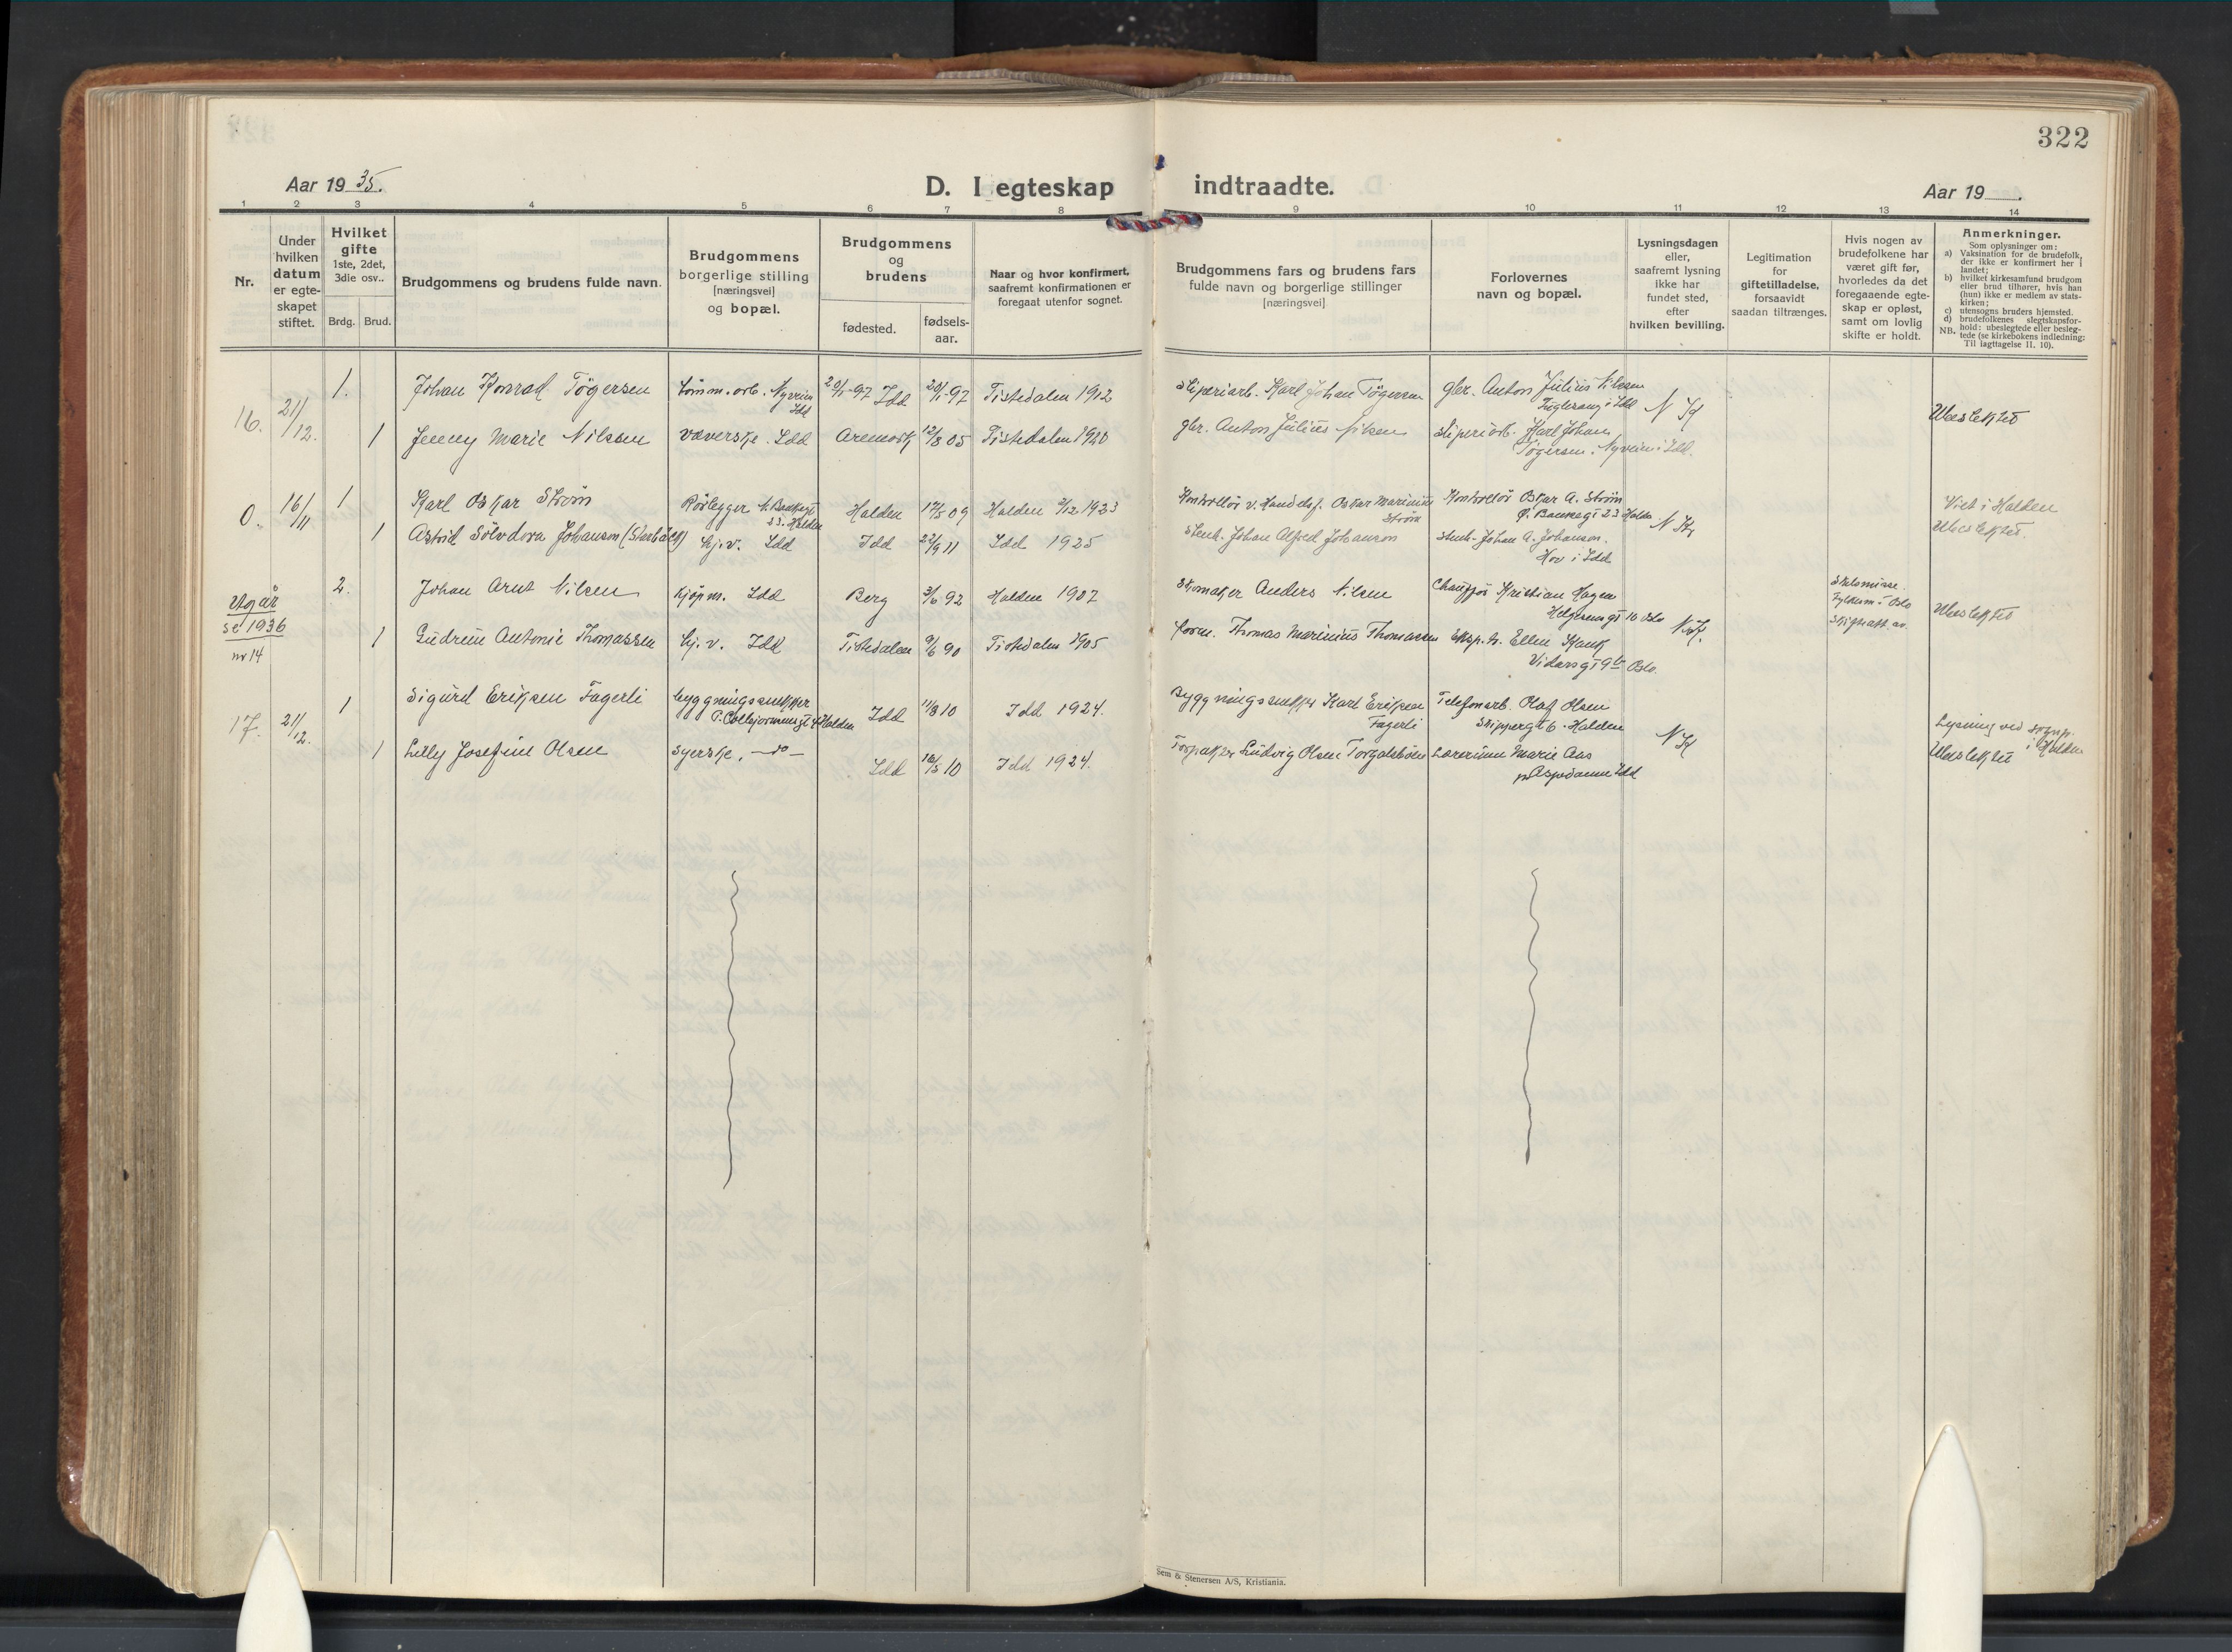 322
Aar 19 35.
D. I egteskap
indtraadte.
Aar 19
1 2 3 4 5 6 7 8 9 10 11 12 13 14
Nr.
Under
hvilken
datum
er egte-
skapet
stiftet.
Hvilket
gifte
1ste, 2det,
3die osv..
Brdg. Brud.
Brudgommens og brudens fulde navn.
Brudgommens
borgerlige stilling
[næringsvei]
og bopæl.
Brudgommens
og
brudens
fødested.
fødsels-
aar.
Naar og hvor konfirmert,
saafremt konfirmationen er
foregaat utenfor sognet.
Brudgommens fars og brudens fars
fulde navn og borgerlige stillinger
[næringsvei]
Forlovernes
navn og bopæl.
Lysningsdagen
eller,
saafremt lysning
ikke har
fundet sted,
efter
hvilken bevilling.
Legitimation
for
giftetilladelse,
forsaavidt
saadan tiltrænges.
Hvis nogen av
brudefolkene har
været gift før,
hvorledes da det
foregaaende egte-
skap er opløst,
samt om lovlig
skifte er holdt.
Anmerkninger.
Som oplysninger om:
a) Vaksination for de brudefolk,
der ikke er konfirmert her i
landet;
b) hvilket kirkesamfund brudgom
eller brud tilhører, hvis han
(hun) ikke er medlem av stats-
kirken;
c) utensogns bruders hjemsted.
d) brudefolkenes slegtskapsfor-
hold: ubeslegtede eller besleg-
NB. tede (se kirkebokens indledning:
Til iagttagelse II. 10).
16. 21/12. 1. Johan Konrad Tögersen Tömm.arb. Nyveien Idd 20/1-97 Idd 20/1-97 Tistedalen 1912 Sliperiarb. Karl Johan Tögersen gbr. Anton Julius Nilsen i Idd N K Ubeslektet
1 Jenny Marie Nilssen væverske. Idd Aremark 12/8 05 Tistedalen 1920 gbr. Anton Julius Nilsen Sliperiarb. Karl Johan
Tögersen. Nyveien i Idd.
0. 16/11 1 Karl Oskar Ström Rörlegger Ø. Bankegt 23. Halden Halden 17/5 09 Halden 2/12 1923 Kontrollör v. Handelsf. Oskar Marinius Ström Kontrollör Oskar A. Ström
Ø. Bankegt 23 Halden N K Viet i Halden
1 Astrid Sölvdora Johanson (Starbäck) hj.v. Idd Idd 22/9 11 Idd 1925 Stenh. Johan Alfred Johanson Stenh. Johan A. Johanson. Ubeslektet.
Hov i Idd
Utgår
se 1936
nr 14
2. Johan Arnt Nilsen kjöpm. Idd Berg 3/6 92 Halden 1907 Skomaker Anders Nilsen Chaufför Kristian Hagen
Helgesensgt 10 Oslo N.K. Skilsmisse.
Fylkesm. i Oslo
Skifteatt. av. Ubeslektet
1 Gudrun Antonie Thomassen hj. v. Idd Tistedalen 9/6 90 Tistedalen 1905 Form. Thomas Marinius Thomassen Eksp. h. Ellen Kauk
Vidarsgt 9b Oslo.
17. 21/12. 1 Sigurd Eriksen Fagerli byggningssnekker
P. Colbjørnsensgt 4 Halden Idd 11/8 10 Idd 1924. Byggningssnekker Karl Eriksen
Fagerli Telefonarb. Olaf Olsen
Skippergt 6. Halden N K Lysning ved sognp.
i Halden
1 Lilly Josefine Olsen syerske, —do— Idd 16/5 10 Idd 1924. Ludvig Olsen Torgalsböen Lærerinne Marie Aas
p. Aspedammen Idd Ubeslektet
Sem & Stenersen A/S, Kristiania.